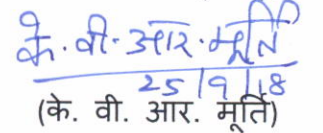 के. वी. आर. मूर्ति
25/9/18
(के. वी. आर. मूर्ति)